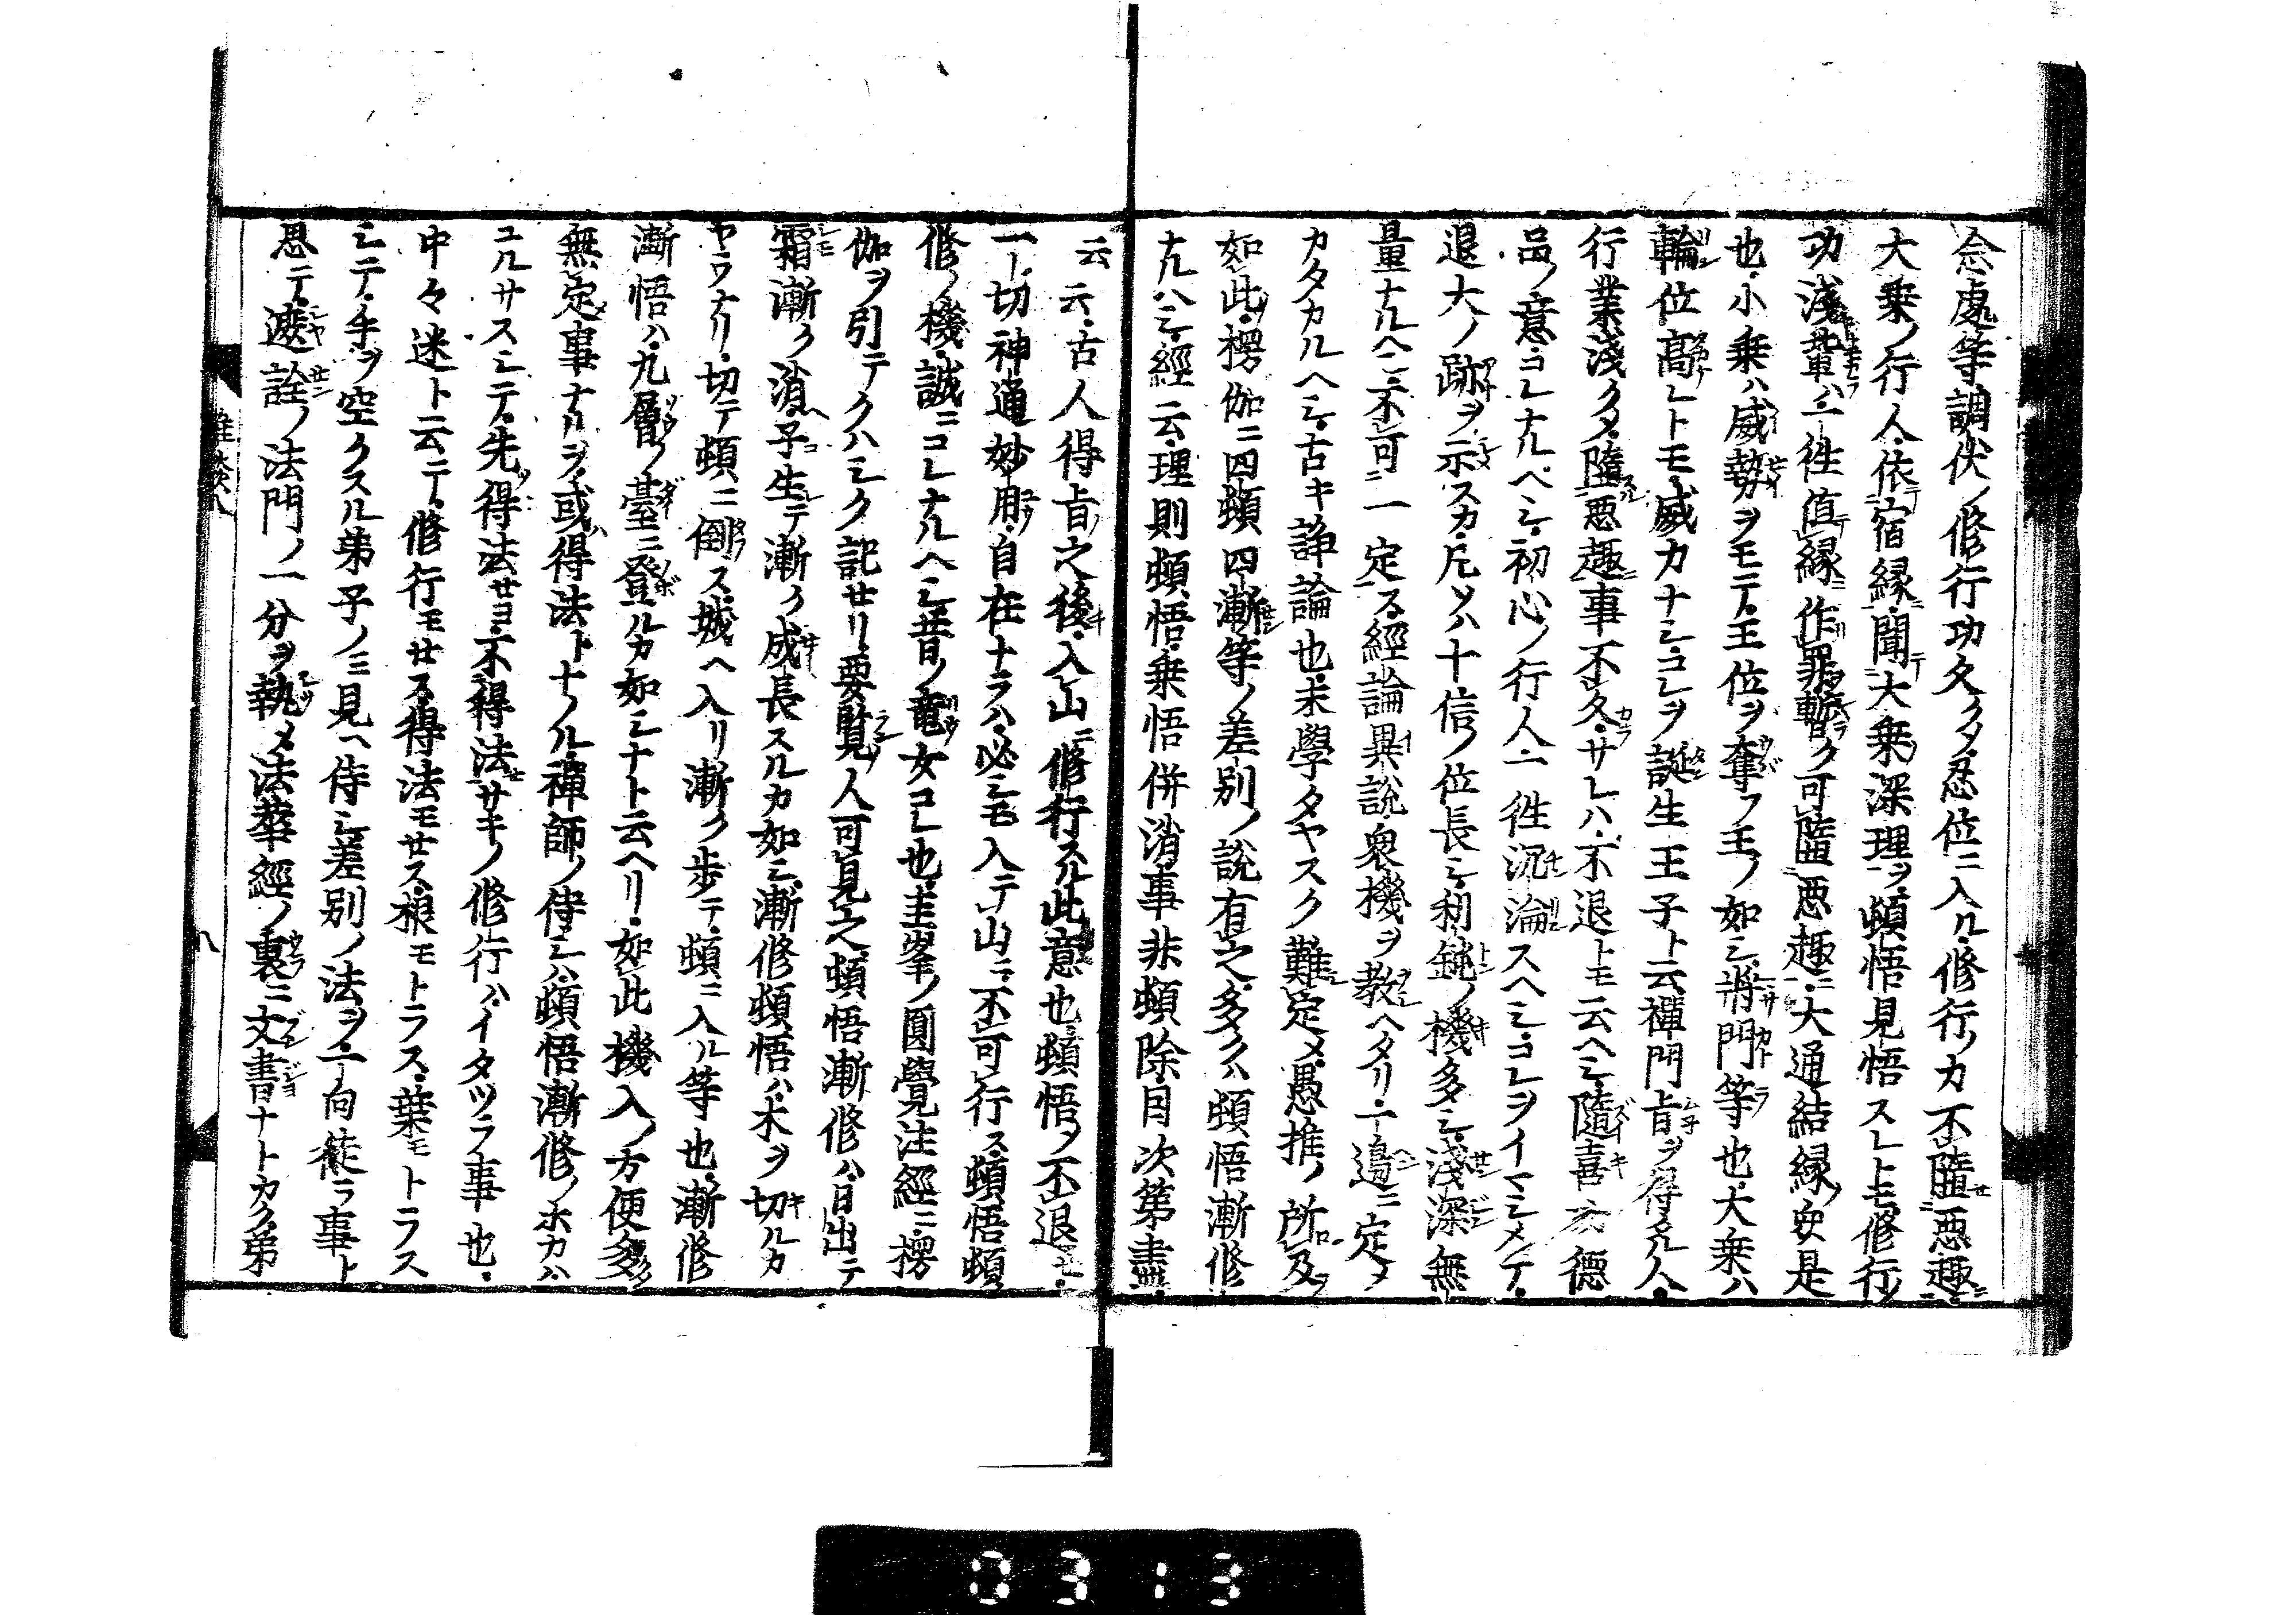 念處等調伏ノ修行功久クタ忍位ニ入ル修行ノ力不墮惡趣ニ
大乗ノ行人依テ宿縁ニ聞テ大乗ノ深理ヲ頓悟見悟スレトモ修行ノ
功淺輩ハ一徃値テ縁ニ作リ罪ヲ暫ク可墮惡趣ニ大通結縁ノ衆是
也小乗ハ威勢ヲモテ王位ヲ奪フ王ノ如シ將門等也大乗ハ
輪位高レトモ威力ナシコレヲ誕生王子ト云禪門旨ヲ得タル人
行業淺クタ墮スル惡趣ニ事不久カラサレハ不退トモ云ヘシ隨喜功德
品ノ意コレナルヘシ初心ノ行人一徃沉淪スヘシコレヲイマシメテ
退大ノ跡ヲ示スカ凡ソハ十信ノ位長シ利鈍ノ機多シ淺深無
量ナルヘシ不可ニ一定ス經論異說衆機ヲ教ヘタリ一邊ニ定メ
カタカルヘシ古キ諍論也未學タヤスク難定メ愚推ノ所及フ
如此ノ楞伽ニ四頓四漸等ノ差別ノ說有之多クハ頓悟漸修
ナルハシ經云理則頓悟乗悟併消事非頓除因次第盡
云云古人得旨之後入山ニ修行スル此意也頓悟ノ不退モ
一切神通妙用自在ナラハ必シモ入テ山ニ不可行ス頓悟頓
修ノ機誠ニコレナルヘシ昔ノ竜女コレ也圭峯ノ圓覺注經ニ楞
伽ヲ引テクハシク記セリ要覧ノ人可見之頓悟漸修ハ日出テ
霜漸ク消ヘ子生テ漸ク成長スルカ如シ漸修頓悟ハ木ヲ切ルカ
ヤウナリ切テ頓ニ倒ス城ヘ入リ漸ク歩テ頓ニ入ル等也漸修
漸悟ハ九層ノ臺ニ登ルカ如シナト云ヘリ如此機入ノ方便多ク
無定事ナルヲ或ハ得法トナノル禪師ノ侍シハ頓悟漸修ノホカハ
ユルサスシテ先ツ得法セヨ不得法サキノ修行ハイタツラ事也
中々迷ト云テ修行モセス得法モセス根モトラス葉モトラス
シテ手ヲ空クスル弟子ノミ見ヘ侍シ差別ノ法ヲ一向徒ラ事ト
思テ遮詮ノ法門ノ一分ヲ執メ法華經ノ裏ニ文書ナトカク弟
八
0313